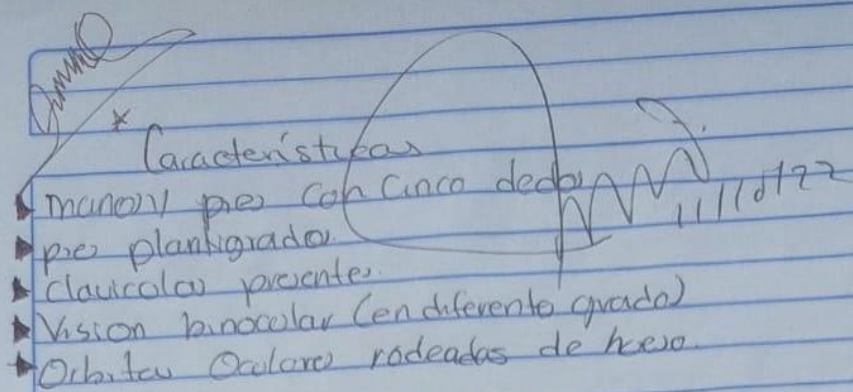 * Características
manos y pies con cinco dedos
pies plantigrados
clavicolas presentes.
Vision binocolar (en diferente grado)
Orbitas Oculares rodeadas de hueso.